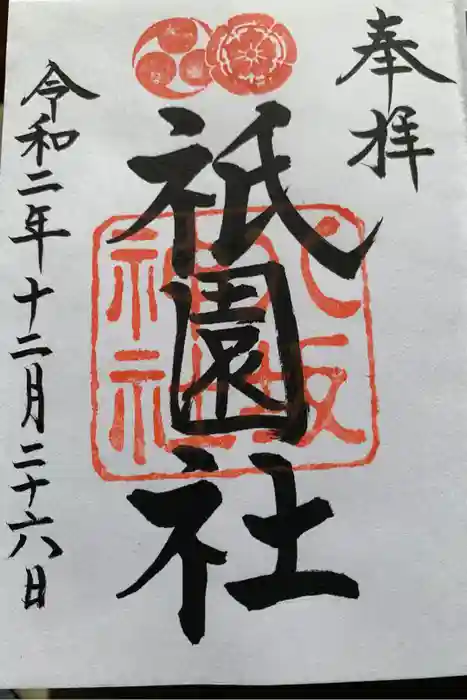 奉拝
祇園社
八坂神社
令和二年十二月二十六日